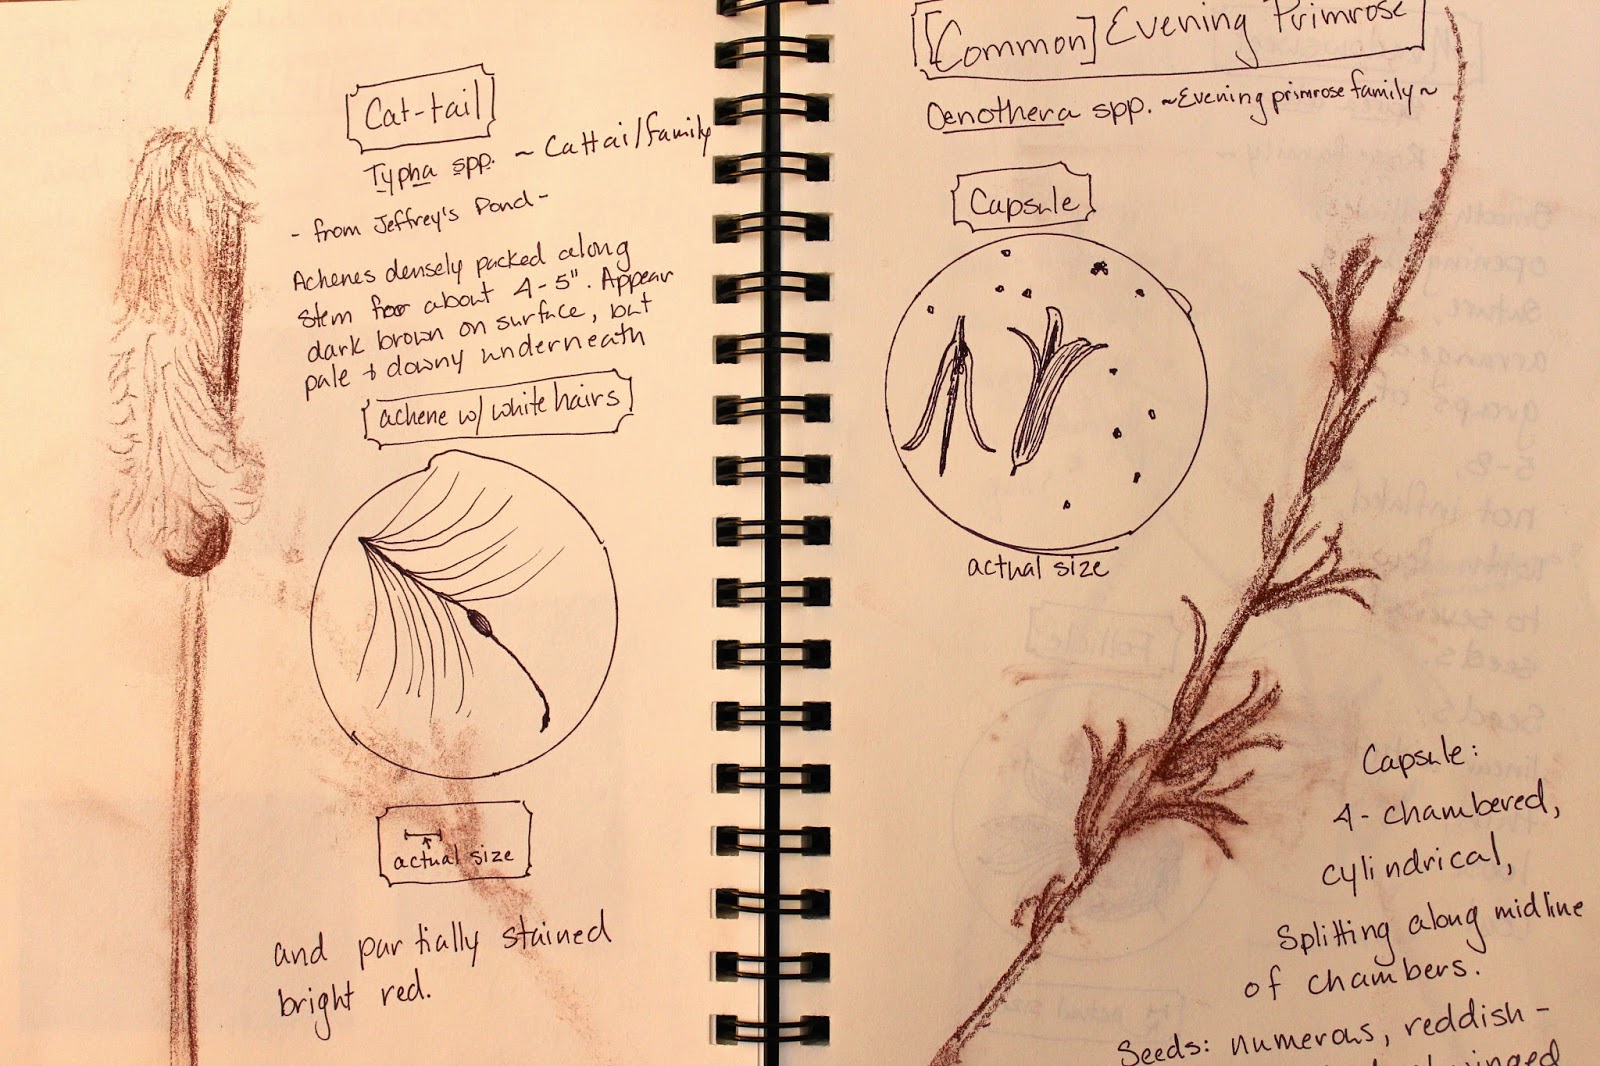 Cat-tail
Typha spp. ~ Cattail family
- from Jeffrey's Pond -
Achenes densely packed along
stem for about 4-5". Appear
dark brown on surface, but
pale + downy underneath
achene w/ white hairs
actual size
and partially stained
bright red.
[Common] Evening Primrose
Oenothera spp. ~Evening primrose family~
Capsule
actual size
Capsule:
4-chambered,
cylindrical,
Splitting along midline
of chambers.
Seeds: numerous, reddish-
winged